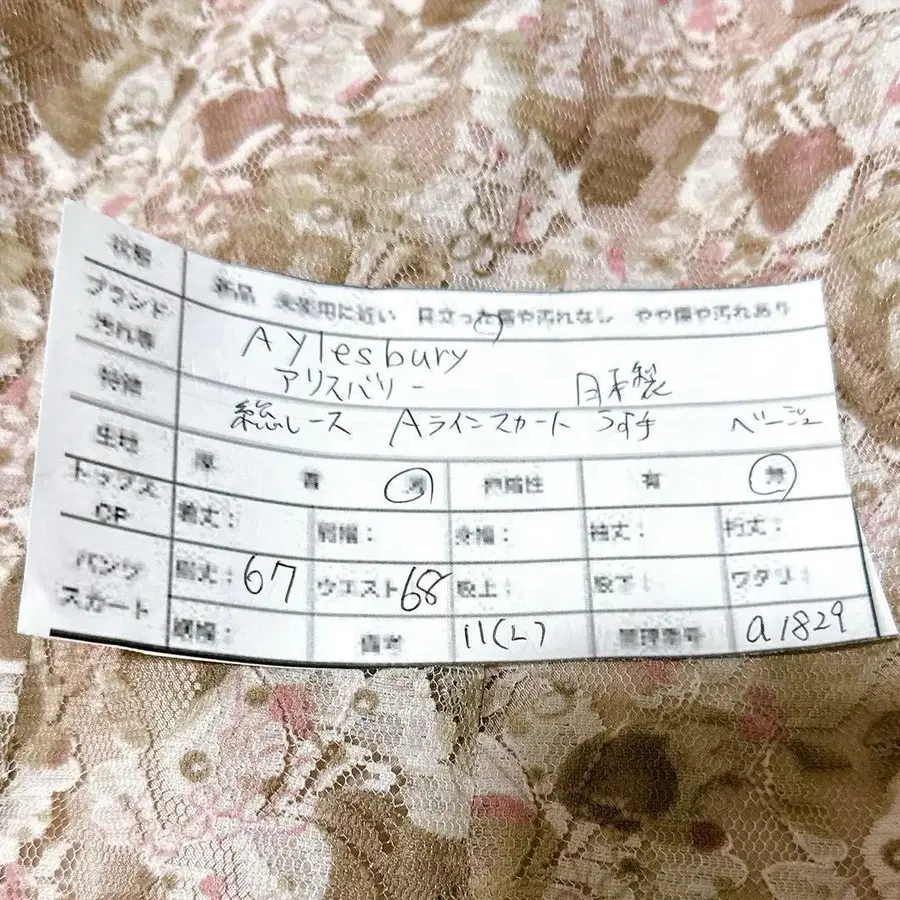 状態 新品 未使用に近い 目立った傷や汚れなし やや傷や汚れあり
ブランド Aylesbury
汚れ等 アリスバリー 日本製
特徴 総レース Aラインスカート うす手 ベージュ
生地 厚 普 薄 伸縮性 有 無
トップス
OP 着丈: 肩幅: 身幅: 袖丈: 裄丈:
パンツ
スカート 総丈:67 ウエスト68 股上: 股下: ワタリ:
裾幅: 備考 11(L) 管理番号 a1829